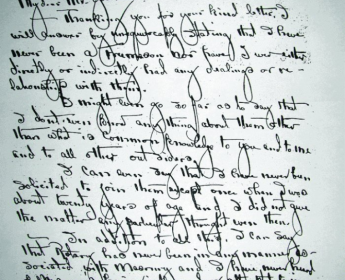 My dear Mr.
Thanking you for your kind letter, I
will answer by unequivocally stating that I have
never been a Freemason nor have I ever either
directly or indirectly had any dealings or re-
lationship with them.
I might even go so far as to say that
I don't even know anything about them other
than what is common knowledge to you and to me
and to all other outsiders.
I can even say that I have never been
solicited to join them except once when I was
about twenty years of age and I did not give
the matter any further thought even then.
In addition to all that, I can say
that Rotary has never been in any manner as-
sociated with Masonry and I have never